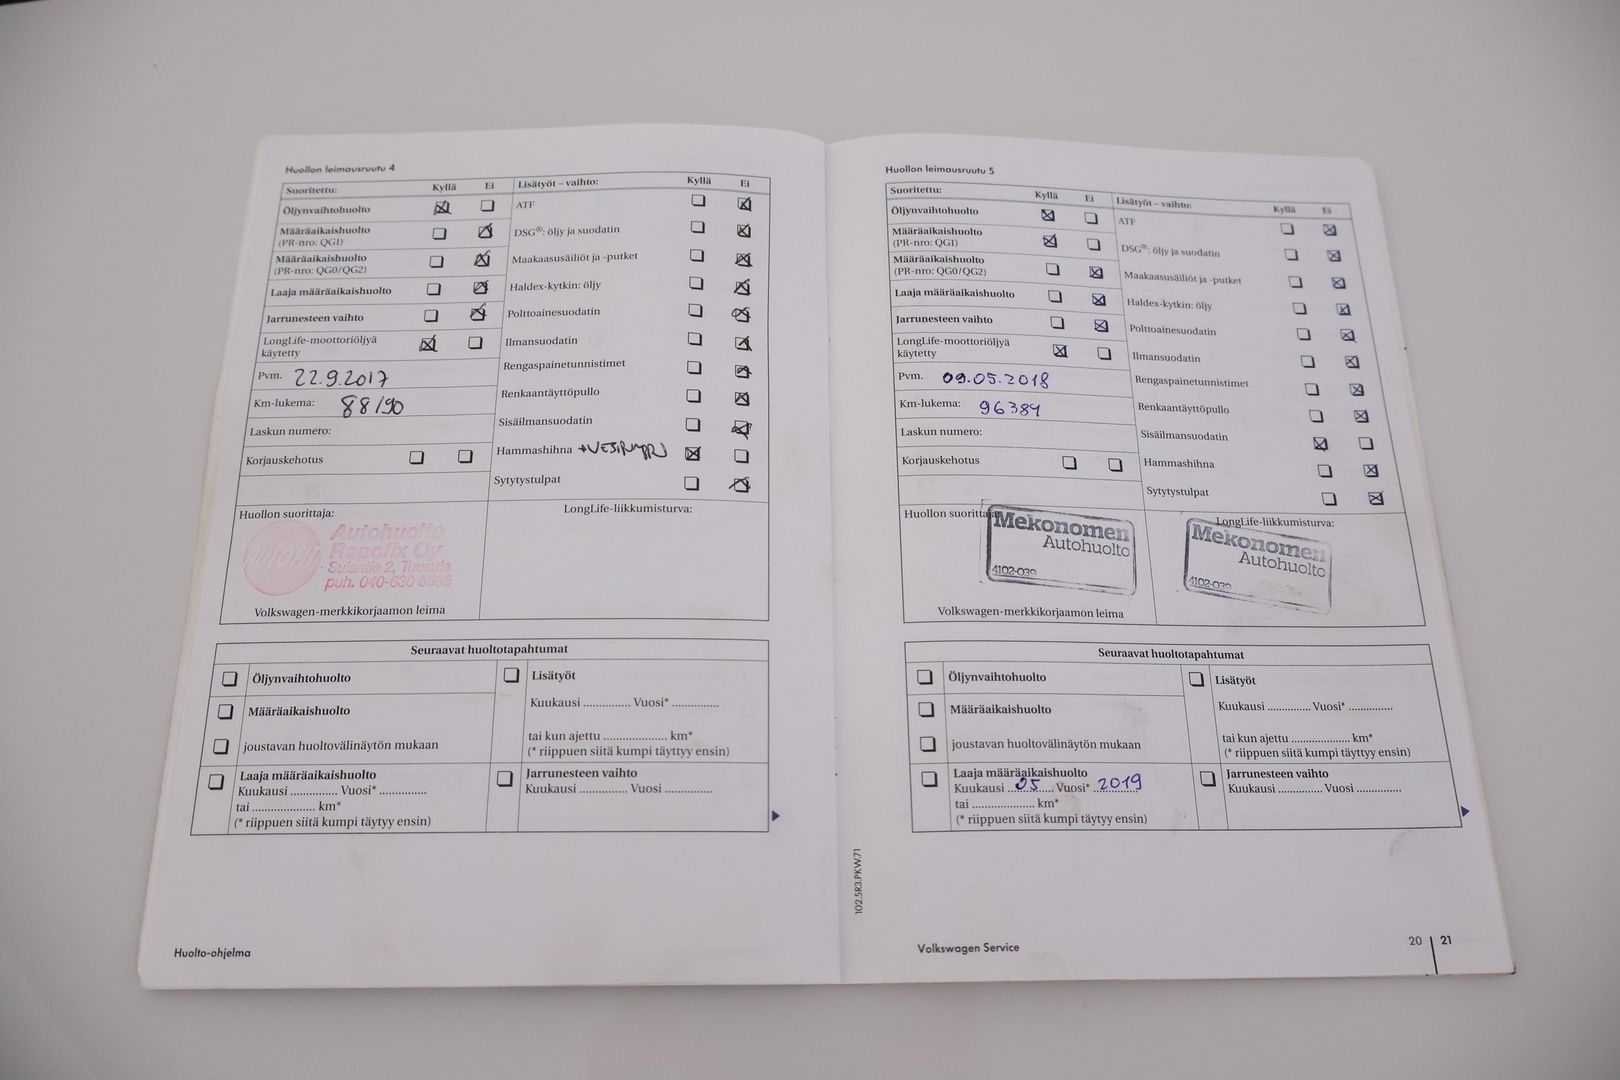 Huollon leimausruutu 4
Suoritettu: Kyllä Ei
Öljynvaihtohuolto
Määräaikaishuolto
(PR-nro: QG1)
Määräaikaishuolto
(PR-nro: QG0/QG2)
Laaja määräaikaishuolto
Jarrunesteen vaihto
LongLife-moottoriöljyä
käytetty
Pvm. 22.9.2017
Km-lukema: 88190
Laskun numero:
Korjauskehotus
Lisätyöt – vaihto: Kyllä Ei
ATF
DSG®: öljy ja suodatin
Maakaasusäiliöt ja -putket
Haldex-kytkin: öljy
Polttoainesuodatin
Ilmansuodatin
Rengaspainetunnistimet
Renkaantäyttöpullo
Sisäilmansuodatin
Hammashihna +VESIPUMPPU
Sytytystulpat
Huollon suorittaja:
AUTOFIT
Autohuolto
Repofix Oy
Sulantie 2, Tuusula
puh. 040-630 8585
Volkswagen-merkkikorjaamon leima
LongLife-liikkumisturva:
Seuraavat huoltotapahtumat
Öljynvaihtohuolto
Määräaikaishuolto
joustavan huoltovälinäytön mukaan
Lisätyöt
Kuukausi ............... Vuosi* ...............
tai kun ajettu .................... km*
(* riippuen siitä kumpi täyttyy ensin)
Laaja määräaikaishuolto
Kuukausi ............... Vuosi* ...............
tai .................... km*
(* riippuen siitä kumpi täytyy ensin)
Jarrunesteen vaihto
Kuukausi ............... Vuosi ...............
Huolto-ohjelma
Huollon leimausruutu 5
Suoritettu: Kyllä Ei
Öljynvaihtohuolto
Määräaikaishuolto
(PR-nro: QG1)
Määräaikaishuolto
(PR-nro: QG0/QG2)
Laaja määräaikaishuolto
Jarrunesteen vaihto
LongLife-moottoriöljyä
käytetty
Pvm. 09.05.2018
Km-lukema: 96384
Laskun numero:
Korjauskehotus
Lisätyöt – vaihto: Kyllä Ei
ATF
DSG®: öljy ja suodatin
Maakaasusäiliöt ja -putket
Haldex-kytkin: öljy
Polttoainesuodatin
Ilmansuodatin
Rengaspainetunnistimet
Renkaantäyttöpullo
Sisäilmansuodatin
Hammashihna
Sytytystulpat
Huollon suorittaja:
Mekonomen
Autohuolto
4102-039
Volkswagen-merkkikorjaamon leima
LongLife-liikkumisturva:
Mekonomen
Autohuolto
4102-039
Seuraavat huoltotapahtumat
Öljynvaihtohuolto
Määräaikaishuolto
joustavan huoltovälinäytön mukaan
Lisätyöt
Kuukausi ............... Vuosi* ...............
tai kun ajettu .................... km*
(* riippuen siitä kumpi täyttyy ensin)
Laaja määräaikaishuolto
Kuukausi 05 Vuosi* 2019
tai .................... km*
(* riippuen siitä kumpi täytyy ensin)
Jarrunesteen vaihto
Kuukausi ............... Vuosi ...............
102.5R3.PKW.71
Volkswagen Service
20 | 21